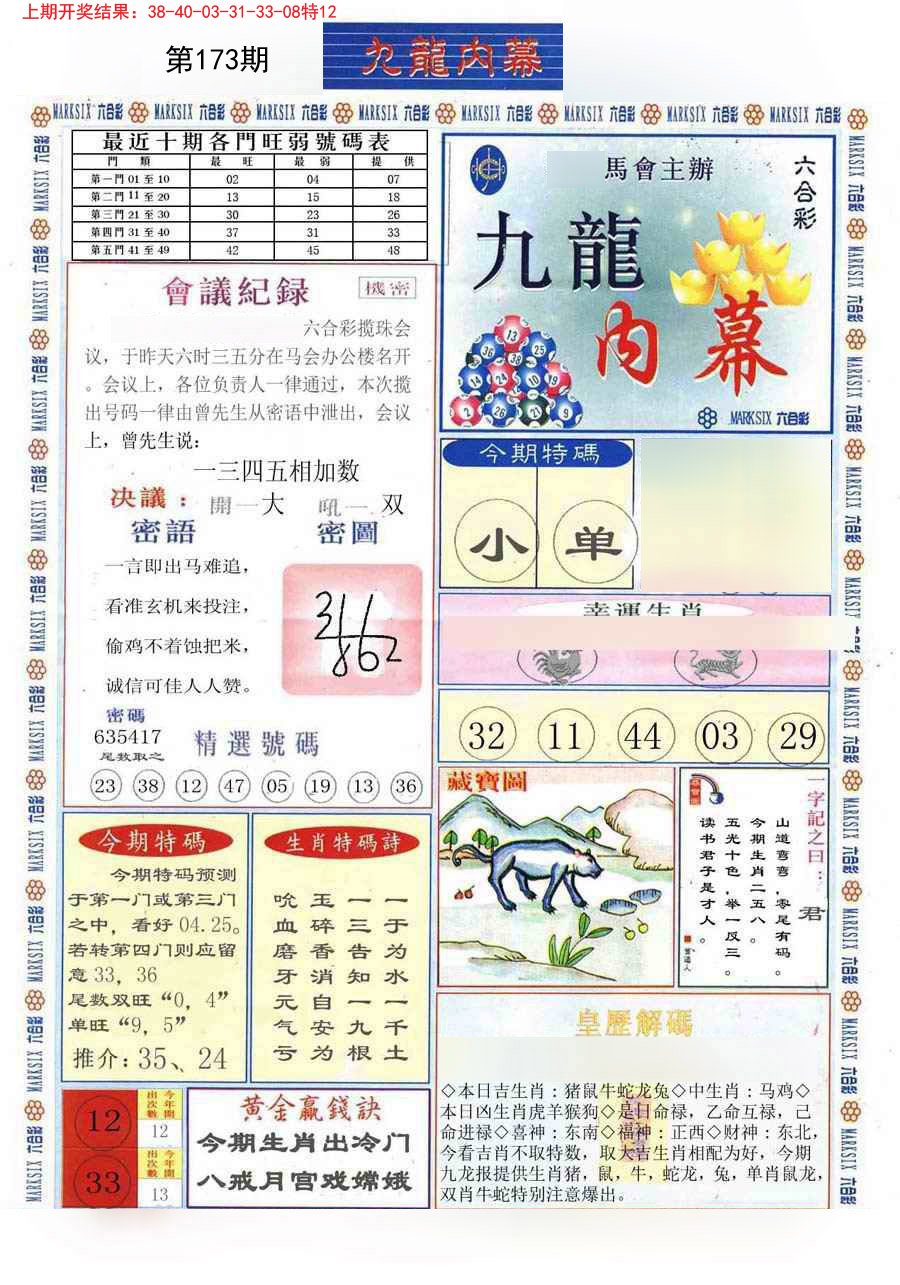 上期开奖结果：38-40-03-31-33-08特12
第173期
九龍内幕
MARKSIX 六合彩 MARKSIX 六合彩 MARKSIX 六合彩 MARKSIX 六合彩 MARKSIX 六合彩 MARKSIX 六合彩 MARKSIX 六合彩 MARKSIX 六合彩
最近十期各門旺弱號碼表
門 類 最 旺 最 弱 提 供
第一門 01 至 10 02 04 07
第二門 11 至 20 13 15 18
第三門 21 至 30 30 23 26
第四門 31 至 40 37 31 33
第五門 41 至 49 42 45 48
會議紀録
機密
六合彩揽珠会
议，于昨天六时三五分在马会办公楼名开
。会议上，各位负责人一律通过，本次揽
出号码一律由曾先生从密语中泄出，会议
上，曾先生说：
一三四五相加数
决議：開一大 吼一双
密語 密圖
一言即出马难追，
看准玄机来投注，
偷鸡不着蚀把米，
诚信可佳人人赞。
密碼
635417
尾数取之
精選號碼
23 38 12 47 05 19 13 36
馬會主辦
六合彩
九龍
内幕
13
36 38 25
14 24 10 19
2 26 27 9
MARKSIX 六合彩
今期特碼
小 单
幸運生肖
32 11 44 03 29
藏寶圖
一字記之曰：君
山道弯弯，零尾有码。
今期生肖二五八。
五光十色，举一反三。
读书君子是才人。
今期特碼
今期特码预测
于第一门或第三门
之中，看好 04.25。
若转第四门则应留
意 33，36
尾数双旺“0，4”
单旺“9，5”
推介：35、24
生肖特碼詩
吮 玉 一 一
血 碎 三 于
磨 香 告 为
牙 消 知 水
元 自 一 一
气 安 九 千
亏 为 根 土
12
今年開出次數
12
33
今年開出次數
13
黄金贏錢訣
今期生肖出冷门
八戒月宫戏嫦娥
皇歷解碼
◇本日吉生肖：猪鼠牛蛇龙兔◇中生肖：马鸡◇
本日凶生肖虎羊猴狗◇是日命禄，乙命互禄，己
命进禄◇喜神：东南◇福神：正西◇财神：东北，
今看吉肖不取特数，取大吉生肖相配为好，今期
九龙报提供生肖猪，鼠，牛，蛇龙，兔，单肖鼠龙，
双肖牛蛇特别注意爆出。